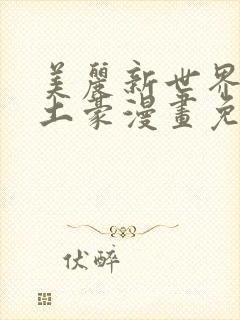 美麗新世界
土豪漫畫免
伏醉